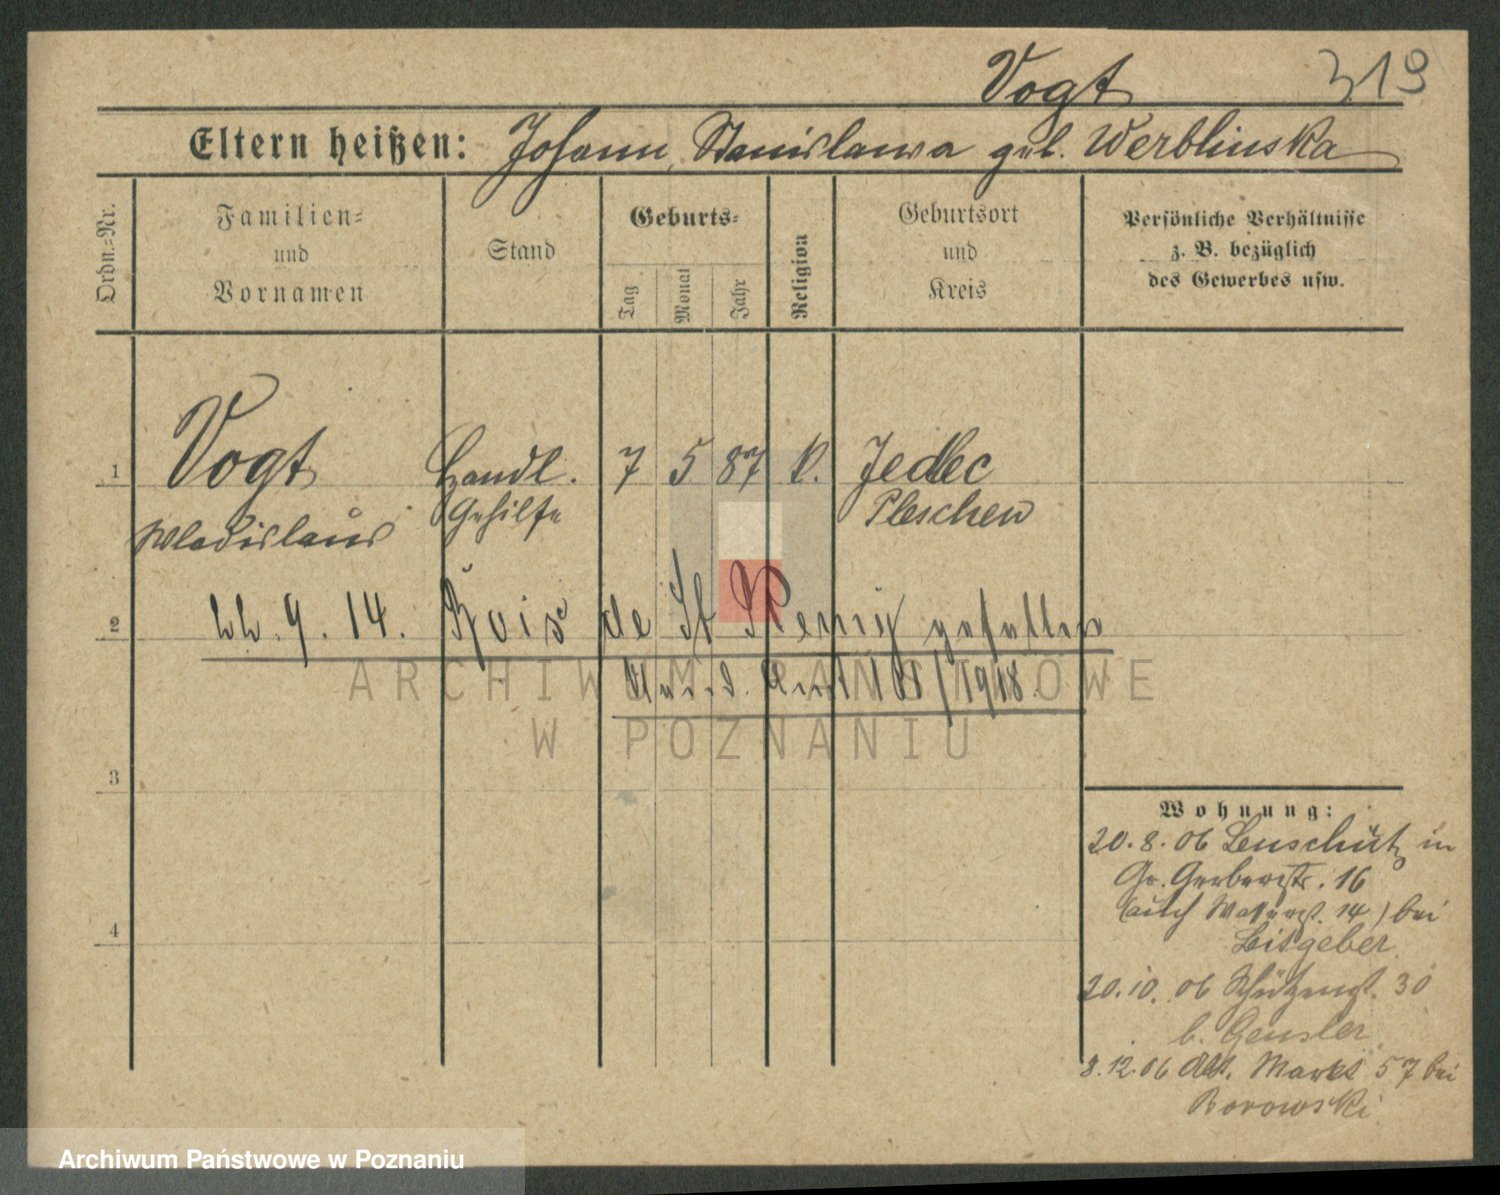 Vogt 319
Eltern heißen: Johann, Stanislawa geb. Werblinska
Ordn.-Nr.
Familien-
und
Vornamen
Stand
Geburts-
Tag
Monat
Jahr
Religion
Geburtsort
und
Kreis
Persönliche Verhältnisse
z. B. bezüglich
des Gewerbes usw.
1 Vogt Handl. 7 5 87 k. Jedlec
Wladislaus Gehilfe Pleschen
2 22. 9. 14. Bois de St Remy gefallen
1918.
3
4
Wohnung:
20.8.06 Lenschütz in
Gr. Gerberstr. 16
(auch Wasserst. 14) bei
Leitgeber
20.10.06 Schützenst. 30
b. Gensler
8.12.06 Alt. Markt 57 bei
Borowski
ARCHIWUM PAŃSTWOWE
W POZNANIU
Archiwum Państwowe w Poznaniu